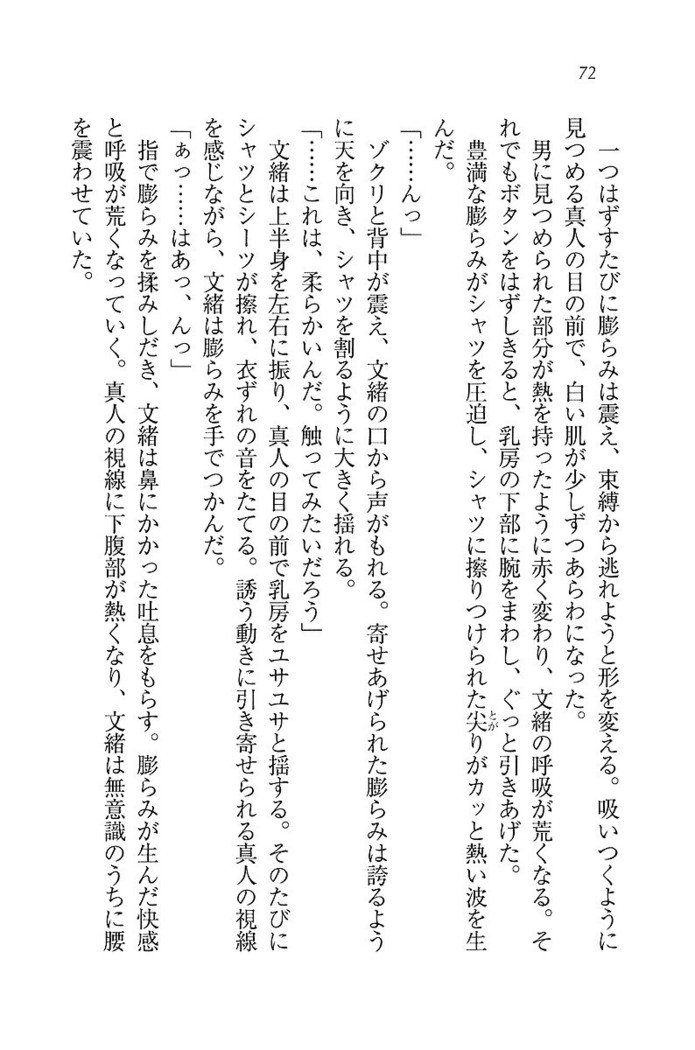 72
一つはずすたびに膨らみは震え、束縛から逃れようと形を変える。吸いつくように
見つめる真人の目の前で、白い肌が少しずつあらわになった。
男に見つめられた部分が熱を持ったように赤く変わり、文緒の呼吸が荒くなる。そ
れでもボタンをはずしきると、乳房の下部に腕をまわし、ぐっと引きあげた。
豊満な膨らみがシャツを圧迫し、シャツに擦りつけられた尖りがカッと熱い波を生
んだ。
「……んっ」
ゾクリと背中が震え、文緒の口から声がもれる。寄せあげられた膨らみは誇るよう
に天を向き、シャツを割るように大きく揺れる。
「……これは、柔らかいんだ。触ってみたいだろう」
文緒は上半身を左右に振り、真人の目の前で乳房をユサユサと揺する。そのたびに
シャツとシーツが擦れ、衣ずれの音をたてる。誘う動きに引き寄せられる真人の視線
を感じながら、文緒は膨らみを手でつかんだ。
「ぁっ……はあっ、んっ」
指で膨らみを揉みしだき、文緒は鼻にかかった吐息をもらす。膨らみが生んだ快感
と呼吸が荒くなっていく。真人の視線に下腹部が熱くなり、文緒は無意識のうちに腰
を震わせていた。